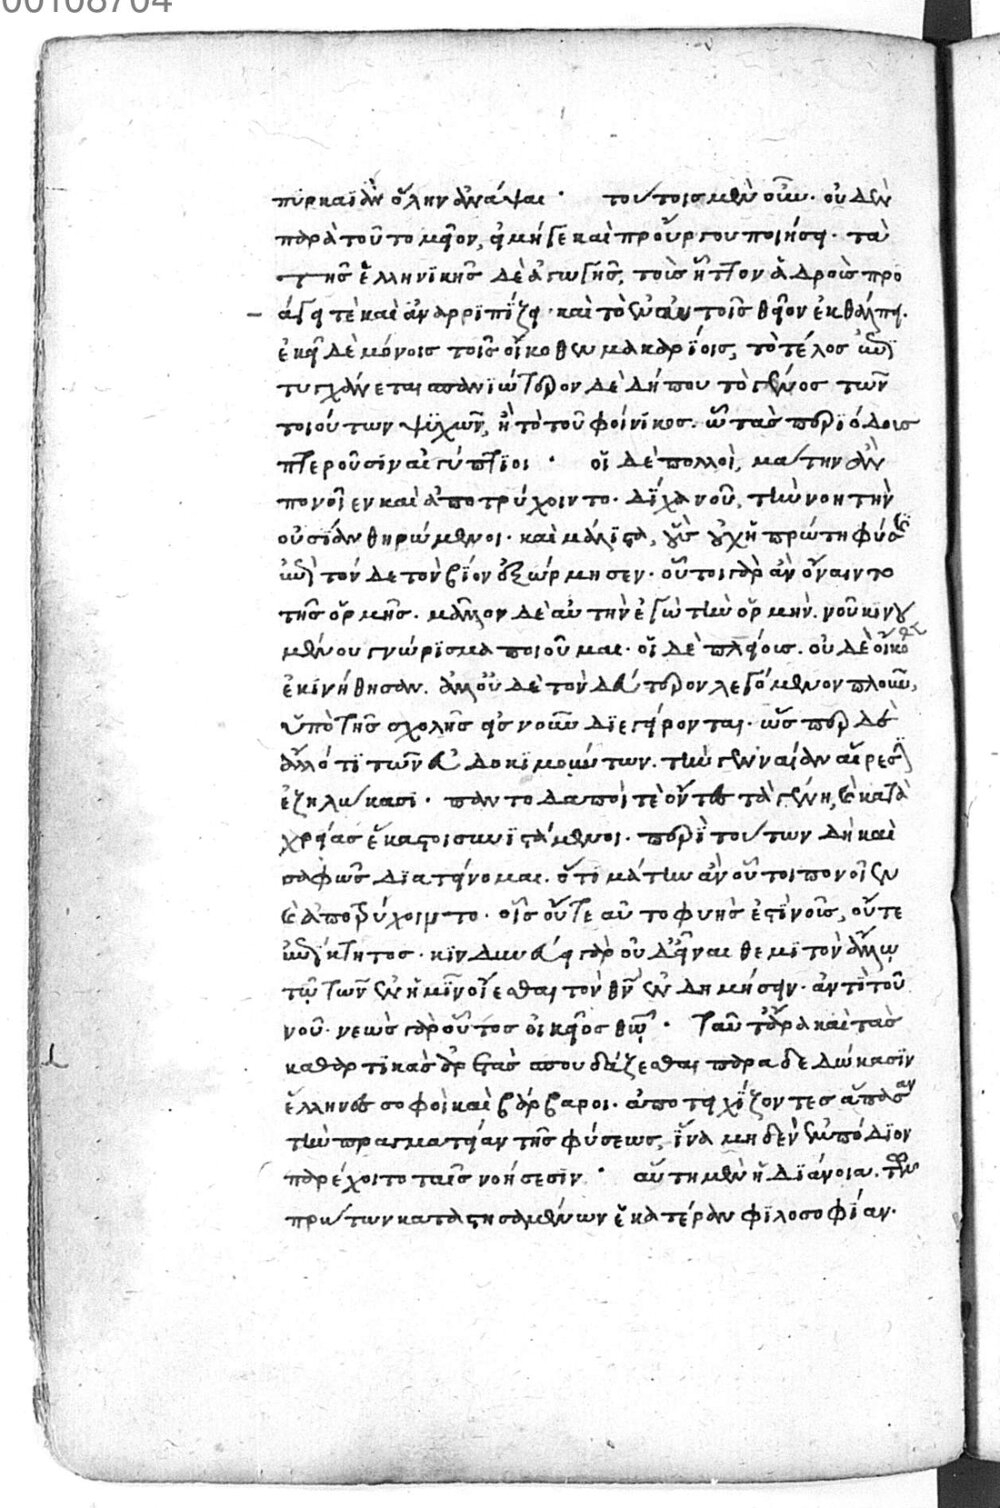 00108704
πυρκαϊὰν ὅλην ἀνάψαι · τούτοις μὲν οὖν · οὐδὲν
παρὰ τοῦτο μεῖον, εἰ μή γε καὶ προὔργου ποιήσει · τὰ
τῆς ἑλληνικῆς δὲ ἀγωγῆς, τοῖς ἧττον ἁδροῖς προ
άγει τὲ καὶ ἀναρριπίζει · καὶ τὸ ἐν αὐτοῖς θεῖον ἐκθάλπει.
ἐκεῖ δὲ μόνοις τοῖς οἴκοθεν μακαρίοις, τὸ τέλος εὐ
τυχάνεται σπανιώτερον δὲ δήπου τὸ γένος τῶν
τοιούτων ψυχῶν, ἢ τὸ τοῦ φοίνικος · ᾧ τὰς περιόδοις
πτεροῦσιν αἰγύπτιοι · οἱ δὲ πολλοὶ, μάτην ἂν
πονοῖεν καὶ ἀποτρύχοιντο · δίχα νοῦ, τὴν νοητὴν
οὐσίαν θηρώμενοι · καὶ μάλιστα, οὓς οὐχ ἡ πρώτη φύσις
ἐπὶ τόνδε τὸν βίον ἐξώρμησεν · οὗτοι γὰρ ἂν ὄναιντο
τῆς ὁρμῆς · μᾶλλον δὲ αὐτὴν ἐγὼ τὴν ὁρμὴν · νοῦ κινου
μένου γνώρισμα ποιοῦμαι · οἱ δὲ πλείοις · οὐδὲ οἴκοθεν
ἐκινήθησαν · ἀλλ' οὐδὲ τὸν δεύτερον λεγόμενον πλοῦν,
ὑπὸ τῆς σχολῆς εἰς νοῦν διεγείρονται · ὥσπερ δὲ
ἄλλό τι τῶν εὐδοκιμούντων · τὴν γενναίαν αἵρεσιν
ἐζηλώκασι · παντοδαποί τε ὄντες τὰ γένη, καὶ κατὰ
χρείας ἕκαστοι συνιστάμενοι · περὶ τούτων δὴ καὶ
σαφῶς διατείνομαι · ὅτι μάτην ἂν οὗτοι πονοῖεν
καὶ ἀποτρύχοιντο · οἷς οὔτε αὐτοφυής ἐστὶ νοῦς, οὔτε
ἐπίκτητος · κινδυνεύει γὰρ οὐδ' εἶναι θεμιτὸν ἄλλῳ
τῳ τῶν ἐν ἡμῖν οἴεσθαι τὸν θν ἐνδημήσειν · ἀντὶ τοῦ
νοῦ · νεὼς γὰρ οὗτος οἰκεῖος θεῷ · ταῦτ' ἄρα καὶ τὰς
καθαρτικὰς ἀρετὰς σπουδάζεσθαι παραδεδώκασιν
ἕλληνες σοφοὶ καὶ βάρβαροι · ἀποτειχίζοντες ἅπασαν
τὴν πραγματείαν τῆς φύσεως, ἵνα μηδὲν ἐμπόδιον
παρέχοιτο ταῖς νοήσεσιν · αὕτη μὲν ἡ διάνοια · τῶν
πρώτων καταστησαμένων ἑκατέραν φιλοσοφίαν.